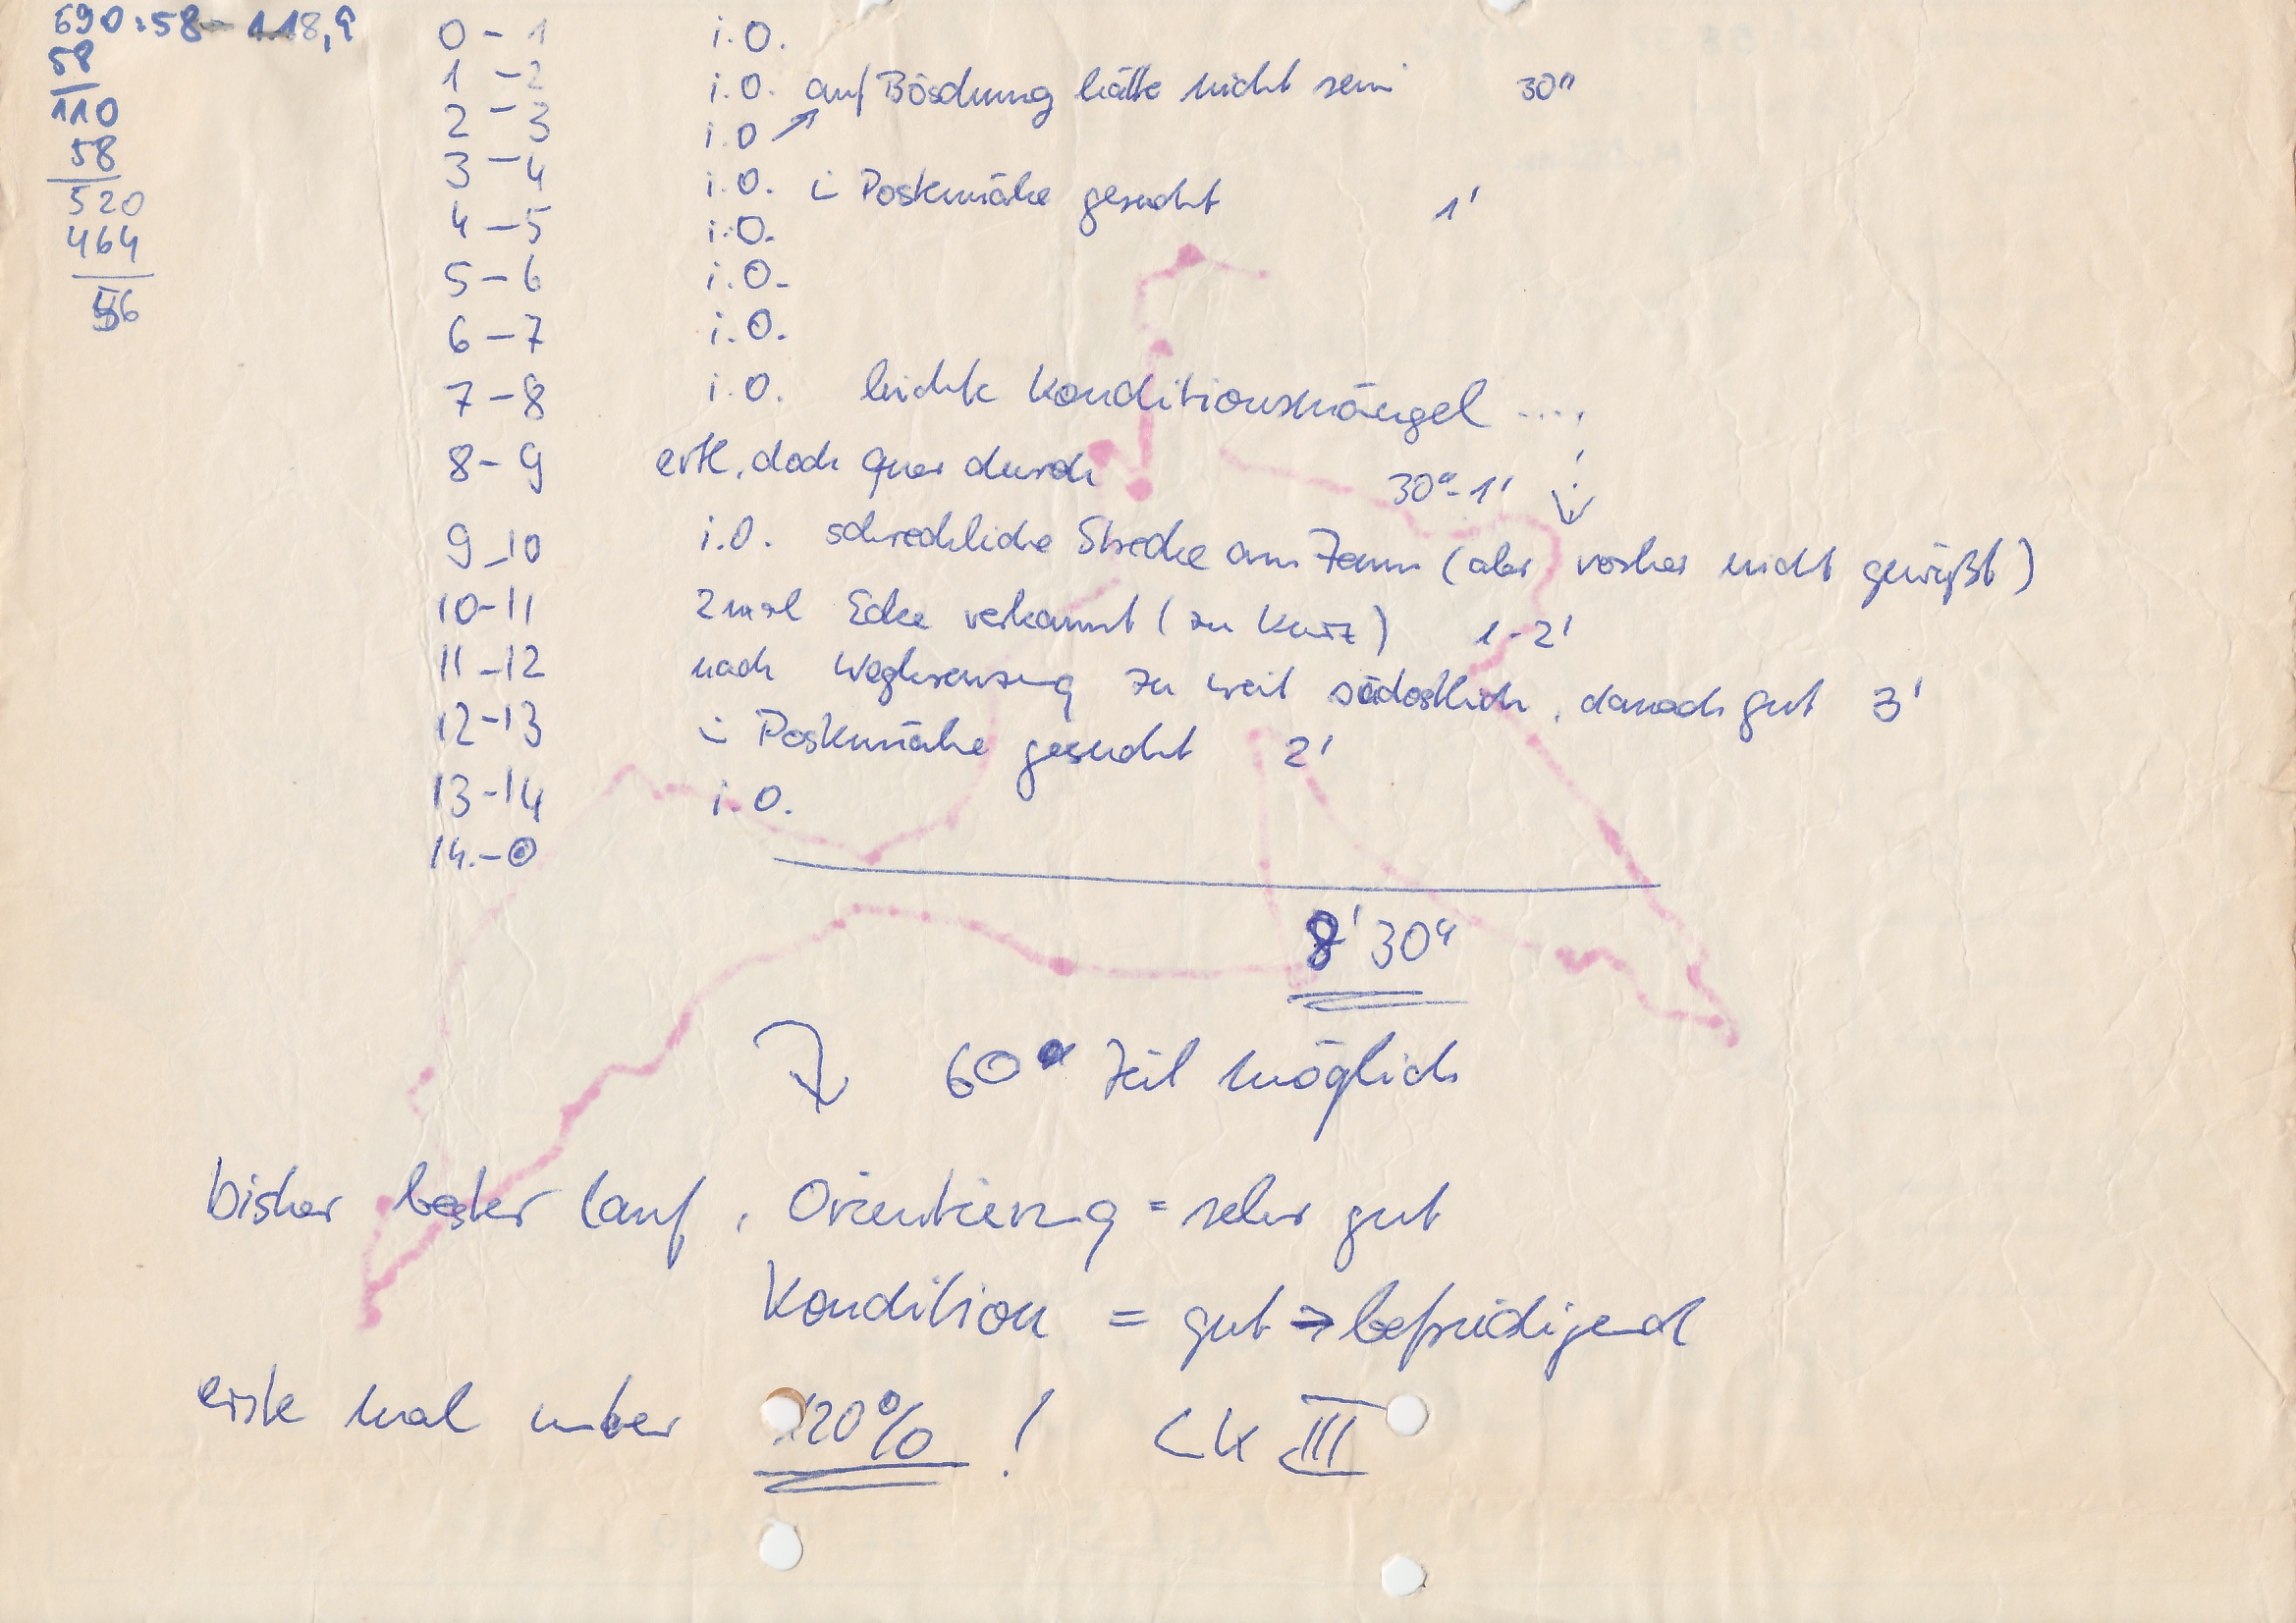 690:58 = 118,9
58
110
58
520
464
56
0 - 1 i.O.
1 - 2 i.O. auf Böschung hätte nicht sein 30"
2 - 3 i.O ↗
3 - 4 i.O. in Postennähe gesucht 1'
4 - 5 i.O.
5 - 6 i.O.
6 - 7 i.O.
7 - 8 i.O. leichte Konditionsmängel ....
8 - 9 evtl. doch quer durch 30"-1'
9 - 10 i.O. schreckliche Strecke am Zaun (aber vorher nicht gewußt)
10-11 2 mal Ecke verkannt (zu kurz) 1-2'
11-12 nach Wegkreuzung zu weit südostlich, danach gut 3'
12-13 in Postennähe gesucht 2'
13-14 i.O.
14.-
8' 30"
60 Zeit möglich
bisher bester Lauf, Orientierung = sehr gut
Kondition = gut → befriedigend
erste mal unter 120% ! LK III